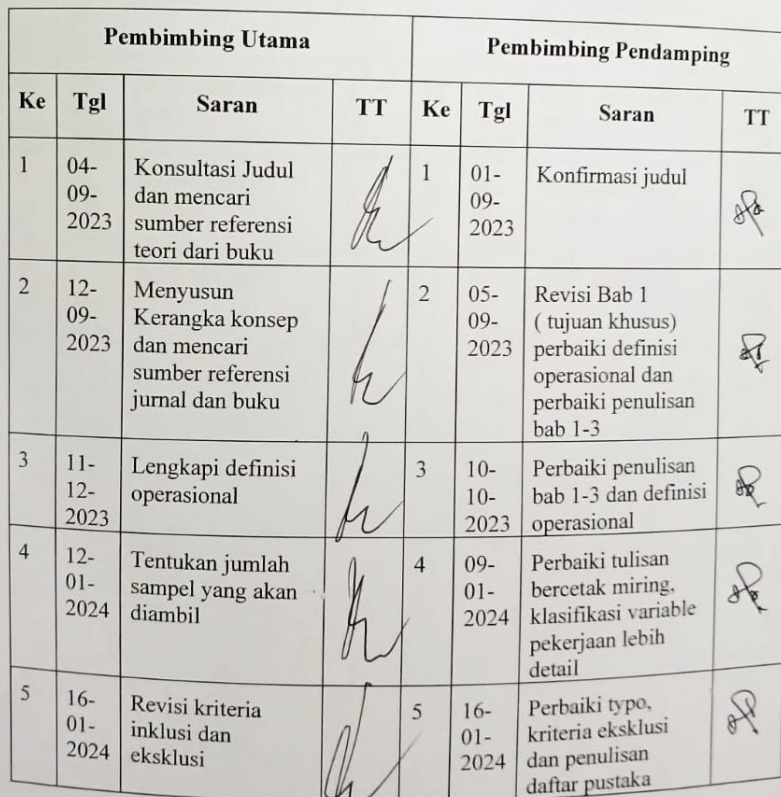 Pembimbing Utama
Pembimbing Pendamping
Ke
Tgl
Saran
TT
Ke
Tgl
Saran
TT
1
04-
09-
2023
Konsultasi Judul
dan mencari
sumber referensi
teori dari buku
1
01-
09-
2023
Konfirmasi judul
2
12-
09-
2023
Menyusun
Kerangka konsep
dan mencari
sumber referensi
jurnal dan buku
2
05-
09-
2023
Revisi Bab 1
( tujuan khusus)
perbaiki definisi
operasional dan
perbaiki penulisan
bab 1-3
3
11-
12-
2023
Lengkapi definisi
operasional
3
10-
10-
2023
Perbaiki penulisan
bab 1-3 dan definisi
operasional
4
12-
01-
2024
Tentukan jumlah
sampel yang akan
diambil
4
09-
01-
2024
Perbaiki tulisan
bercetak miring,
klasifikasi variable
pekerjaan lebih
detail
5
16-
01-
2024
Revisi kriteria
inklusi dan
eksklusi
5
16-
01-
2024
Perbaiki typo,
kriteria eksklusi
dan penulisan
daftar pustaka